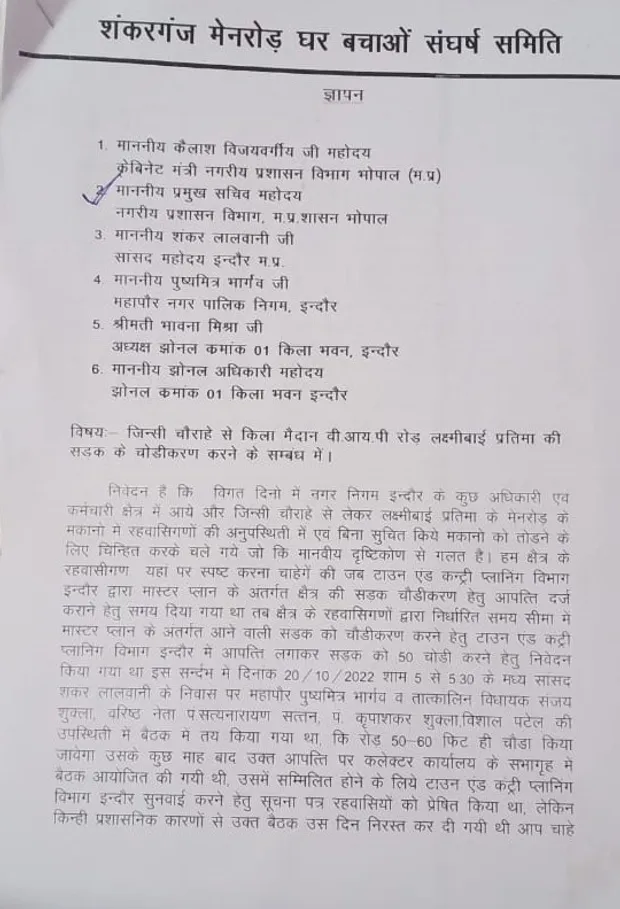 शंकरगंज मेनरोड़ घर बचाओं संघर्ष समिति
ज्ञापन
1. माननीय कैलाश विजयवर्गीय जी महोदय
केबिनेट मंत्री नगरीय प्रशासन विभाग भोपाल (म.प्र)
2. माननीय प्रमुख सचिव महोदय
नगरीय प्रशासन विभाग, म.प्र.शासन भोपाल
3. माननीय शंकर लालवानी जी
सांसद महोदय इन्दौर म.प्र.
4. माननीय पुष्यमित्र भार्गव जी
महापौर नगर पालिक निगम, इन्दौर
5. श्रीमती भावना मिश्रा जी
अध्यक्ष झोनल कमांक 01 किला भवन, इन्दौर
6. माननीय झोनल अधिकारी महोदय
झोनल कमांक 01 किला भवन इन्दौर
विषयः– जिन्सी चौराहे से किला मैदान वी.आय.पी रोड़ लक्ष्मीबाई प्रतिमा की
सड़क के चोडीकरण करने के सम्बंध में।
निवेदन है कि विगत दिनो में नगर निगम इन्दौर के कुछ अधिकारी एवं
कर्मचारी क्षेत्र में आये और जिन्सी चौराहे से लेकर लक्ष्मीबाई प्रतिमा के मेनरोड़ के
मकानो में रहवासिगणों की अनुपस्थिती में एवं बिना सुचित किये मकानो को तोडने के
लिए चिन्हित करके चले गये जो कि मानवीय दृष्टिकोण से गलत है। हम क्षेत्र के
रहवासीगण यहां पर स्पष्ट करना चाहेगें की जब टाउन एंड कन्ट्री प्लानिंग विभाग
इन्दौर द्वारा मास्टर प्लान के अंतर्गत क्षेत्र की सडक चौडीकरण हेतु आपत्ति दर्ज
कराने हेतु समय दिया गया था तब क्षेत्र के रहवासिगणों द्वारा निर्धारित समय सीमा में
मास्टर प्लान के अंतर्गत आने वाली सड़क को चौडीकरण करने हेतु टाउन एंड कंट्री
प्लानिंग विभाग इन्दौर में आपत्ति लगाकर सडक को 50 चोडी करने हेतु निवेदन
किया गया था इस सन्दंभ मे दिनाक 20/10/2022 शाम 5 से 530 के मध्य सांसद
शकर लालवानी के निवास पर महापौर पुष्यमित्र भार्गव व तात्कालिन विधायक संजय
शुक्ला, वरिष्ठ नेता प.सत्यनारायण सत्तन, पं. कृपाशकर शुक्ला,विशाल पटेल की
उपस्थिती में बैठक मे तय किया गया था, कि रोड़ 50–60 फिट ही चौडा किया
जावेगा उसके कुछ माह बाद उक्त आपत्ति पर कलेक्टर कार्यालय के सभागृह में
बैठक आयोजित की गयी थी, उसमें सम्मिलित होने के लिये टाउन एंड कंट्री प्लानिंग
विभाग इन्दौर सुनवाई करने हेतु सूचना पत्र रहवासियों को प्रेषित किया था, लेकिन
किन्ही प्रशासनिक कारणों से उक्त बैठक उस दिन निरस्त कर दी गयी थी आप चाहे